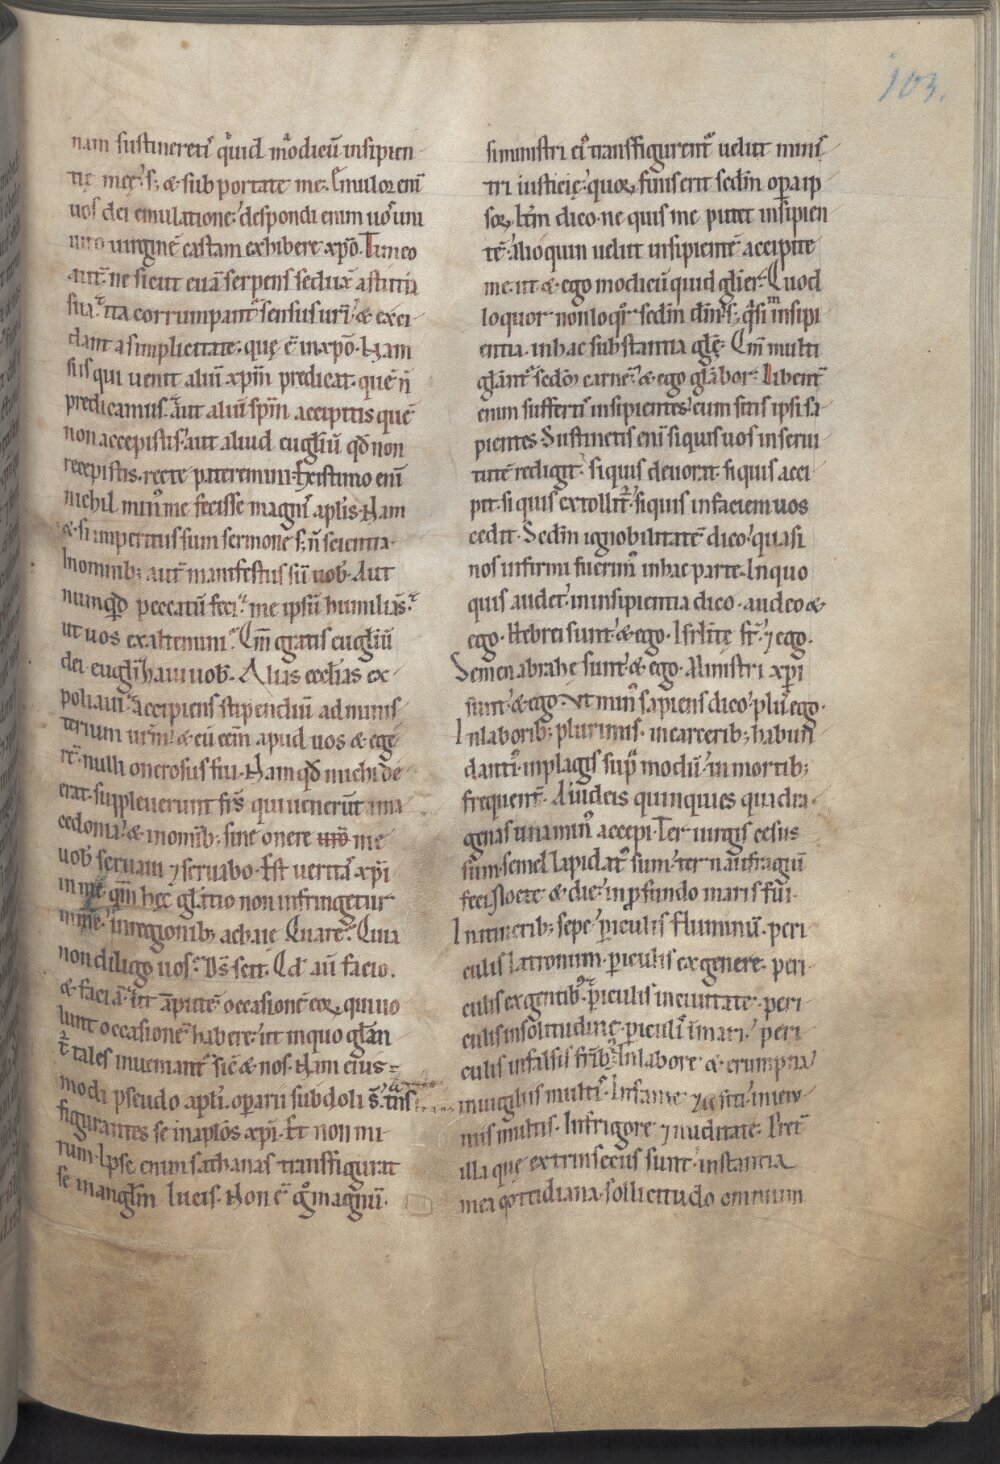 103.
nam sustineretꝭ qͥuid mͦodicū insipien
tię meę: sꝫ & subportate me. Emulor enī
uos dei emulatione: despondi enim uoˢ uni
uiro uirginē castam exhibere xp̄o. Timeo
aut̄ ne sicut euā serpens seduxͭ astutia
sua: ita corrumpantᷣ sensus urī: & exci
dant a simplicitate: quę ē in xp̄o. Nam
si is qui uenit aliū xp̄m predicat. quē n̄
predicamus. aut aliū sp̄m accipitis quē
non accepistis: aut aliud eugl̄iū qd̄ non
recepistis. recte pateremini. Existimo enī
nichil minꝰ me fecisse magnis apl̄is. Nam
& si imperitus sum sermone: sꝫ n̄ scientia.
In omnibꝫ aut̄ manifestus sū uob̄. Aut
numqͥd peccatū feci: me ipsū humilians:
ut uos exaltemini: Qm̄ gratis eugl̄iū
dei eugl̄izaui uob̄. Alias eccl̄ias ex
poliaui: accipiens stipendiū ad minis
terium urm̄: & cū eem̄ apud uos & ege
rē. nulli onerosus fui. Nam qd̄ michi de
erat. suppleuerunt frs̄ qui uenerūt a ma
cedonia: & in omībꝫ sine onere uro me
uob̄ seruaui ⁊ seruabo. Est ueritas xp̄i
in me. qm̄ hęc glātio non infringetur
in me: in regionibꝫ achaie Quare: Quia
non diligo uos: Ds̄ scit. Qd̄ aū facio.
& faciā: ut āputē occasionē eoꝝ qui uo
lunt occasionē habere: ut in quo glān
tᷣ tales inueniantᷣ sic̄ & nos. Nam eius=
modi pseudo apl̄i. oꝑarii subdoli s̄. tns
figurantes se in aplōs xp̄i. Et non mi
rum. Ipse enim sathanas transfigurat
se in angl̄m lucis. Non ē gͦ magnū.
si ministri eiꝰ transfigurentᷣ uelut minis
tri iusticię: quoꝝ finis erit sedm̄ opa ip
soꝝ. Itm̄ dico. ne quis me putet insipien
tē: alioquin uelut insipientē accipite
me. ut & ego modicū quid glier. Quod
loquor non loqr̄ sedm̄ dm̄: sꝫ qͣsi in insipi
entia. in hac substantia glę̄. Qm̄ multi
glānt̄ sedm̄ carnē: & ego glābor. Libentᷣ
enim suffertꝭ insipientes: cum sitis ipsi sa
pientes. Sustinetis enī si quis uos in serui
tutē redigit. si quis deuorat. si quis acci
pit. si quis extollitᷣ. si quis in faciem uos
cedit. Sedm̄ ignobilitatē dico: quasi
nos infirmi fuerimꝰ in hac parte. In quo
quis audet: in insipientia dico. audeo &
ego. Hebrei sunt: & ego. Isrl̄itę st̄: ⁊ ego.
Semen abrahę sunt: & ego. Ministri xp̄i
sunt: & ego. Vt minꝰ sapiens dico: plus ego.
In laboribꝫ plurimis. in carceribꝫ habun
dantiꝰ. in plagis supͣ modū: in mortibꝫ
frequentᷣ. A iudeis quinquies quadra
genas una minꝰ accepi. Ter uirgis cesus
sūm. semel lapidatꝰ sum: ter naufragiū
feci. Nocte & die: in ꝓfundo maris fui.
In itineribꝫ sepe: ꝑiculis fluminū. peri
culis latronum. ꝑiculis ex genere. peri
culis ex gentibꝰ. ꝑiculis in ciuitate. peri
culis in solitudine. ꝑiculis ī mari. peri
culis in falsis fr̄ibꝫ. In labore & erumpna:
in uigiliis multis. In fame ⁊ siti: in ieiu
niis multis. In frigore ⁊ nuditate. Pretᷣ
illa quę extrinsecus sunt. instantia
mea cottidiana. sollicitudo omnium